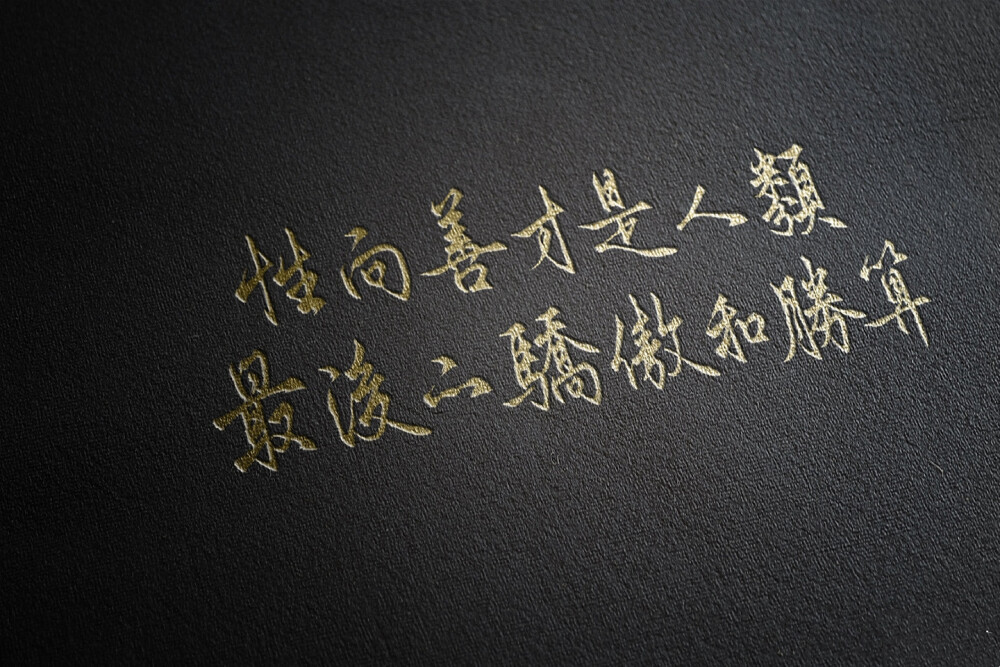 性向善才是人類
最後之驕傲和勝算